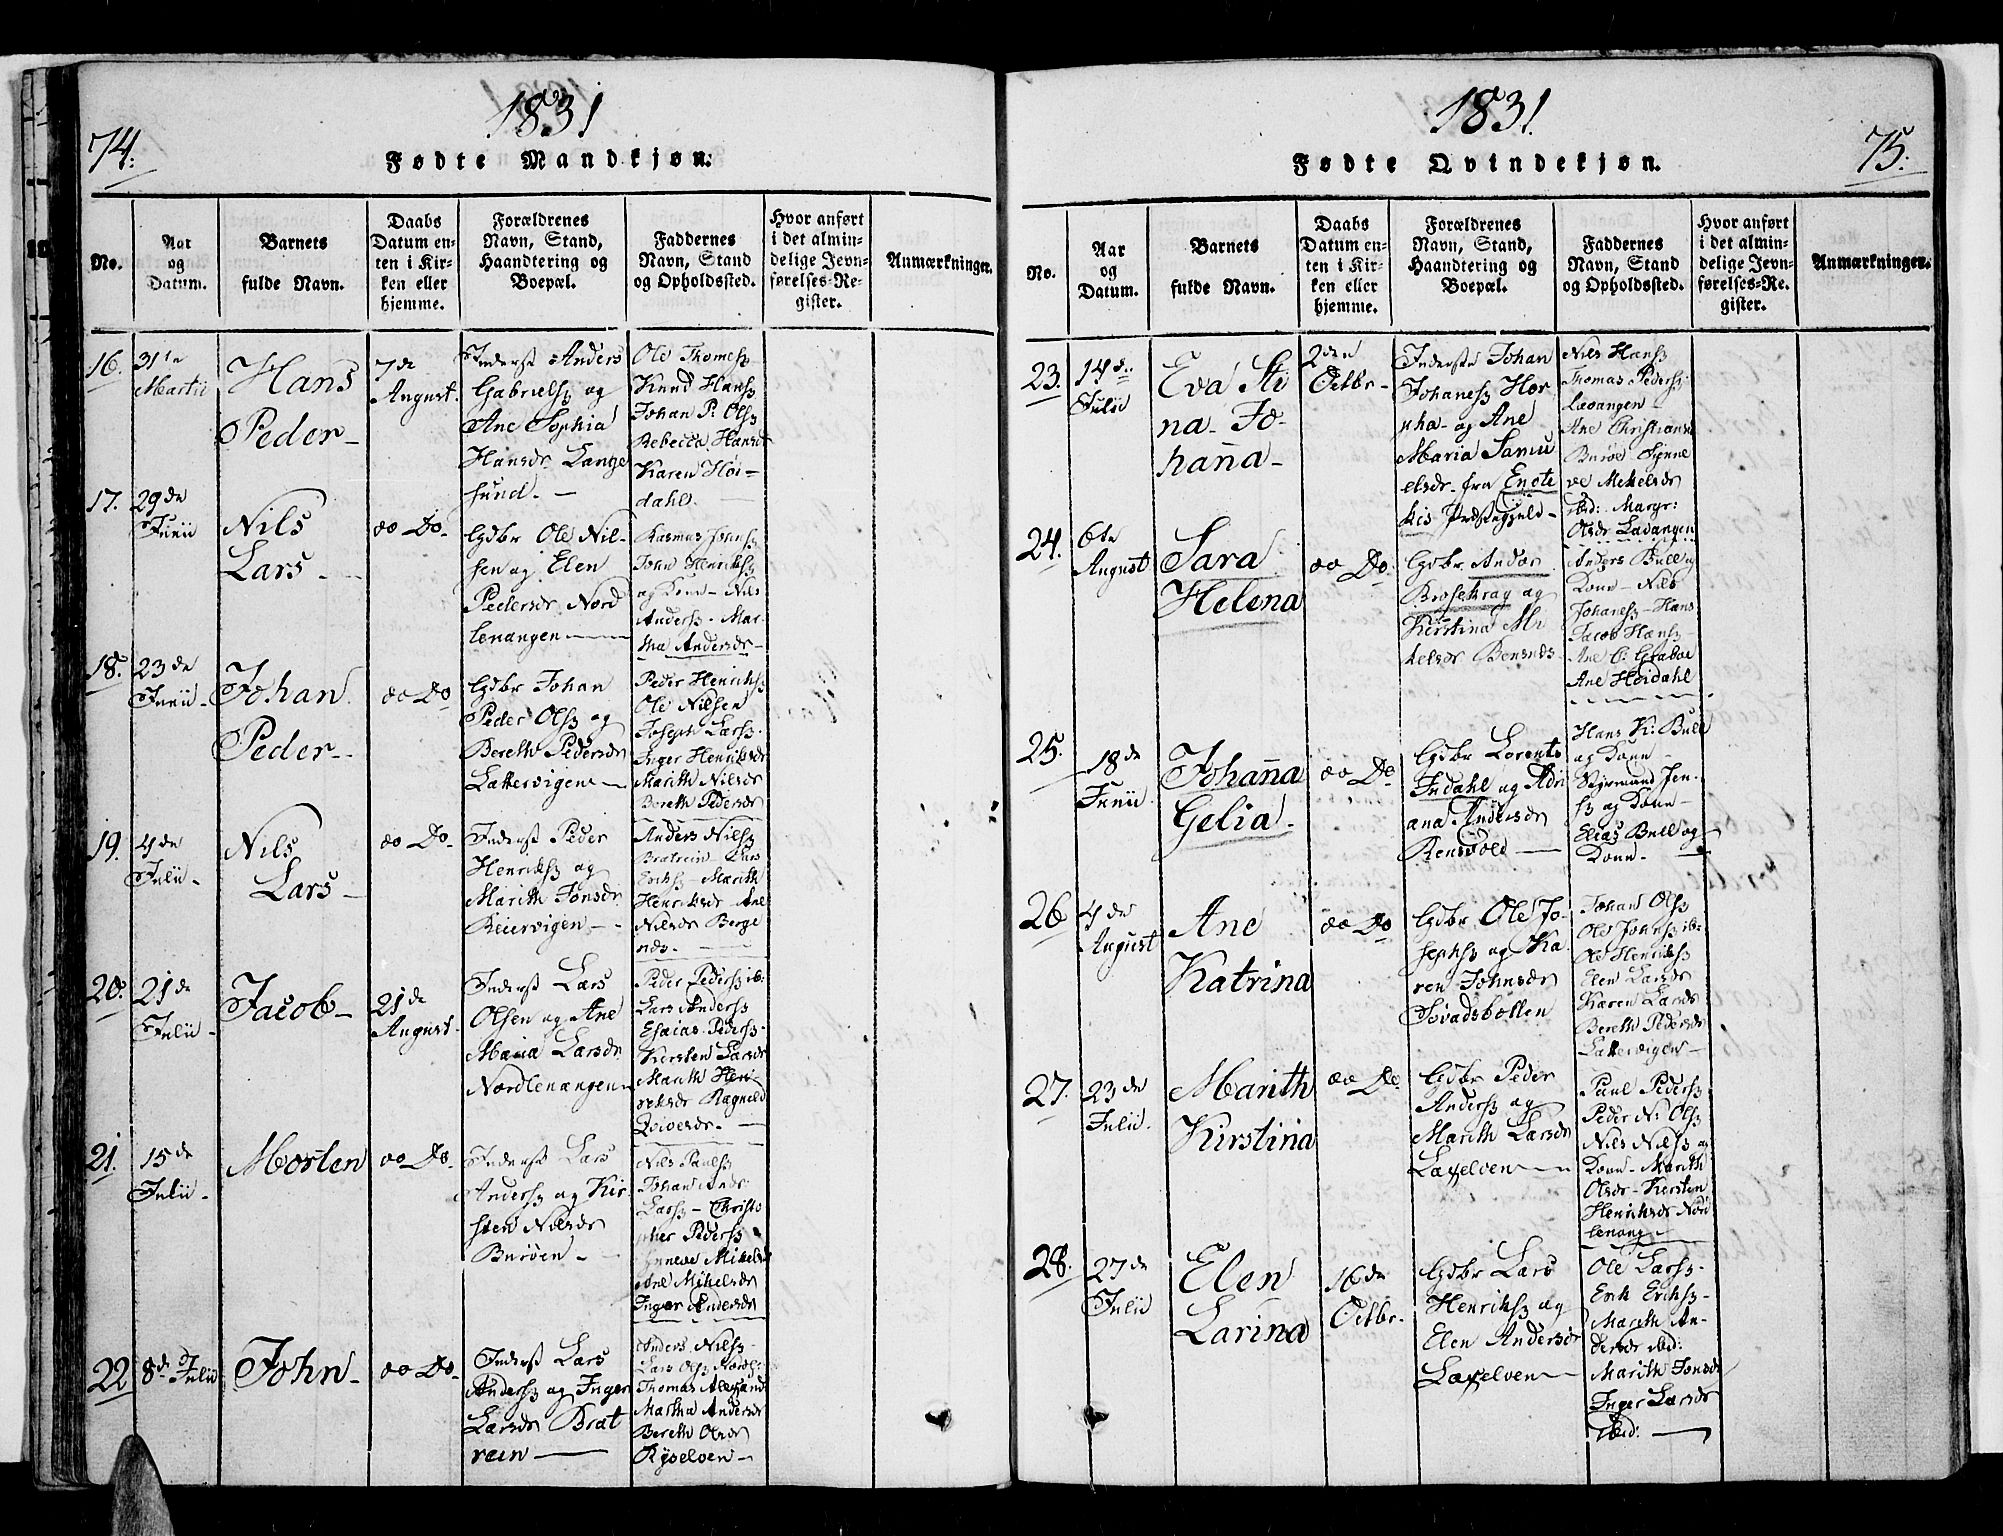 74.
1831
Fødte Mandkjøn.
No.
Aar
og
Datum.
Barnets
fulde Navn.
Daabs
Datum en-
ten i Kir-
ken eller
hjemme.
Forældrenes
Navn, Stand,
Haandtering og
Boepæl.
Faddernes
Navn, Stand
og Opholdssted.
Hvor anført
i det almin-
delige Jevn-
førelses-Re-
gister.
Anmærkninger.
16.
31te
Martii
Hans
Peder-
7de
August.
Inderst Anders
Gabrielsz og
Ane Sophia
Hansdr Lange
sund. -
Ole Thomesz
Knud Hansz
Johan P. Olsz
Rebecca Hansd
Karen Høi-
dahl.
17.
29de
Junii
Nils
Lars-
oo Do-
Gdbr Ole Nil-
sen og Elen
Pedersdr Nord
lenangen-
Rasmus Johnsz
John Henriksz
og Kone- Nils
Andersz- Mar-
tha Andersdr-
18.
23de
Junii-
Johan
Peder-
oo Do
Gdbr Johan
Peder Olsz og
Bereth Pedersdr
Lattervigen-
Peder Henriksz
Ole Nilsen
Joseph Larsz-
Inger Henriksdr
Marith Nilsdr
Bereth Pedersdr
19.
4de
Julii-
Nils
Lars-
oo Do-
Inderst Peder
Henriksz og
Marith Jonsdr
Reiervigen-
Anders Nilsz
Bratrein Lars
Eriksz- Marith
Henriksdr Ane
Nilsdr Berge
næs.-
20.
21de
Julii-
Jacob-
21de
August-
Inderst Lars
Olsen og Ane
Maria Larsdr
Nordlenangen
Peder Pedersz ib:
Lars Andersz
Esaias Pedersz-
Kirsten Larsdr
Marith Hen-
riksdr Ragnild
21.
15de
Julii-
Morten
oo Do-
Inderst Lars
Andersz og Kir-
sten Nilsdr
Burøen-
Nils Paulsz
Johan Andr:
Larsz- Christo
pher Pedersz
Synneve Mikelsd
Ane Mikelsdr
Inger Andersdr
22
8de Julii
John-
oo Do-
Inderst Lars
Andersz og Inger
Larsdr Brat
rein-
Anders Nilsz-
Lars Olsz Nordl:
Thomas Alexand
Martha Andersdr
Bereth Olsdr
Kjoselven-
1831.
75.
Fødte Qvindekjøn.
No.
Aar
og
Datum.
Barnets
fulde Navn.
Daabs
Datum en-
ten i Kir-
ken eller
hjemme.
Forældrenes
Navn, Stand,
Haandtering og
Boepæl.
Faddernes
Navn, Stand
og Opholdssted.
Hvor anført
i det almin-
delige Jevn-
førelses-Re-
gister.
Anmærkninger.
23.
14de
Julii
Eva Sti
na- Jo-
hana-
2den
Octbr-
Inderste Johan
Johanesz Hor
pha- og Ane
Maria Samu
elsdr- fra Enote
kis Præstegjeld-
Nils Hansz
Thomas Pedersz-
Lavangen-
Ane Christiansd
Burøe Synne
ve Mekelsdr
ibid: Margr:
Olsdr Lavangen
24.
6te
August
Sara
Helena
oo Do.
Gdbr Andor
Brosekrag og
Kirstina Mi
kelsdr Bensnes
Anders Bull og
Kone- Nils
Johanesz- Hans
Jacob Hansz
Ane C: Grabow
Ane Høidahl
25.
18de
Junii.
Johana
Gelia-
oo Do
Gdbr Lorents
Indahl og Adri
ana Andersdr
Rensvold-
Hans K: Bull
og Kone-
Styrmand Jen-
sz og Kone-
Elias Bull og
Kone-
26
4de
August
Ane
Katrina
oo Do
Gdbr Ole Jo-
sephsz og Ka
ren Johnsdr
Sovadsbotten
Johan Olsz
Ole Johnsz ib:
Ole Henriksz
Elen Larsdr
Karen Larsdr
Bereth Pedersdr
Lattervigen-
27.
23de
Julii.
Marith
Kirstina
oo Do.
Gdbr Peder
Andersz og
Marith Larsdr
Laxelven-
Paul Pedersz
Peder N: Olsz
Nils Nilsz og
Kone- Marith
Olsdr- Kersten
Henriksdr Nord
lenang-
28.
27de
Julii
Elen
Larina
16de
Octbr-
Gdbr Lars
Henriksz og
Elen Andersdr
Laxelven-
Ole Larsz-
Erik Eriksz-
Mareth An-
dersdr ibid:
Marith Jonsdr
Inger Larsdr
ibid:-